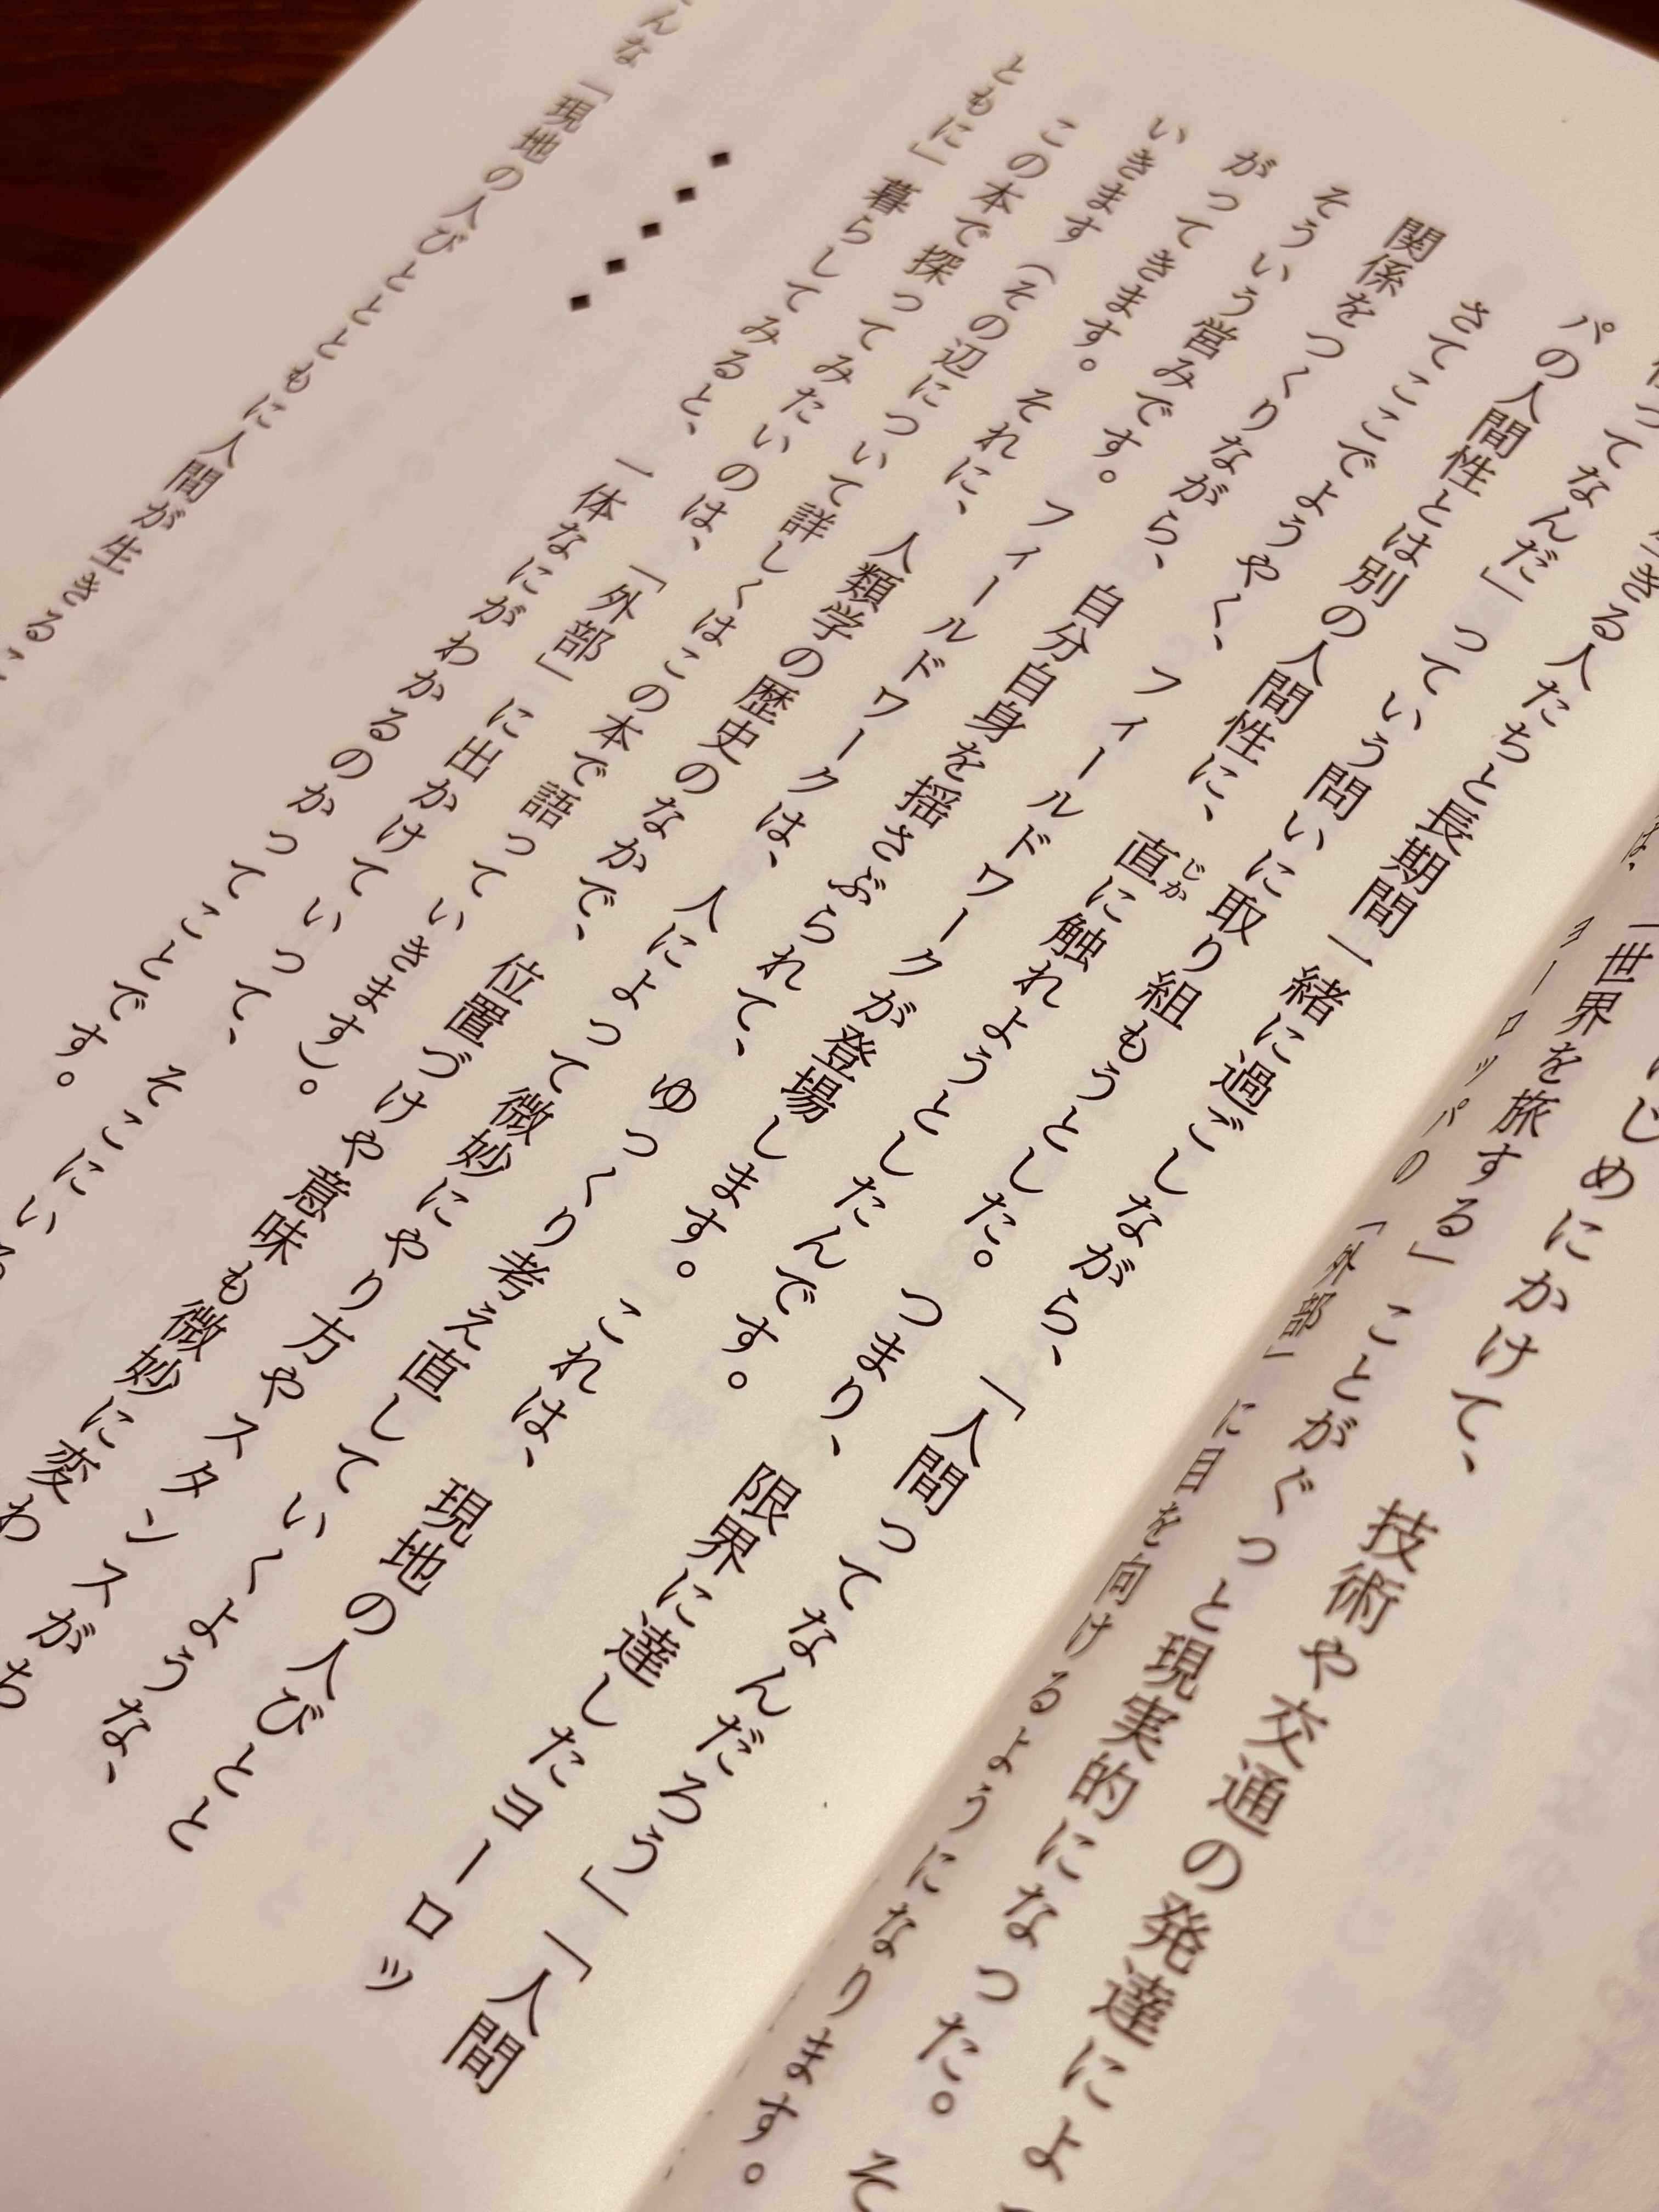 じめにかけて、技術や交通の発達によ
「世界を旅する」ことがぐっと現実的になった。そ
は、ヨーロッパの「外部」に目を向けるようになります。
生きる人たちと長期間一緒に過ごしながら、「人間ってなんだろう」「人間
ってなんだ」っていう問いに取り組もうとした。つまり、限界に達したヨーロッ
パの人間性とは別の人間性に、直に触れようとしたんです。
じか
さてここでようやく、フィールドワークが登場します。これは、現地の人びとと
関係をつくりながら、自分自身を揺さぶられて、ゆっくり考え直していくような、
そういう営みです。フィールドワークは、人によって微妙にやり方やスタンスがち
がってきます。それに、人類学の歴史のなかで、位置づけや意味も微妙に変わ
いきます（その辺について詳しくはこの本で語っていきます）。
この本で探ってみたいのは、「外部」に出かけていって、そこにい
ともに」暮らしてみると、一体なにがわかるのかってことです。
◆◆◆◆◆
んな「現地の人びととともに人間が生きる